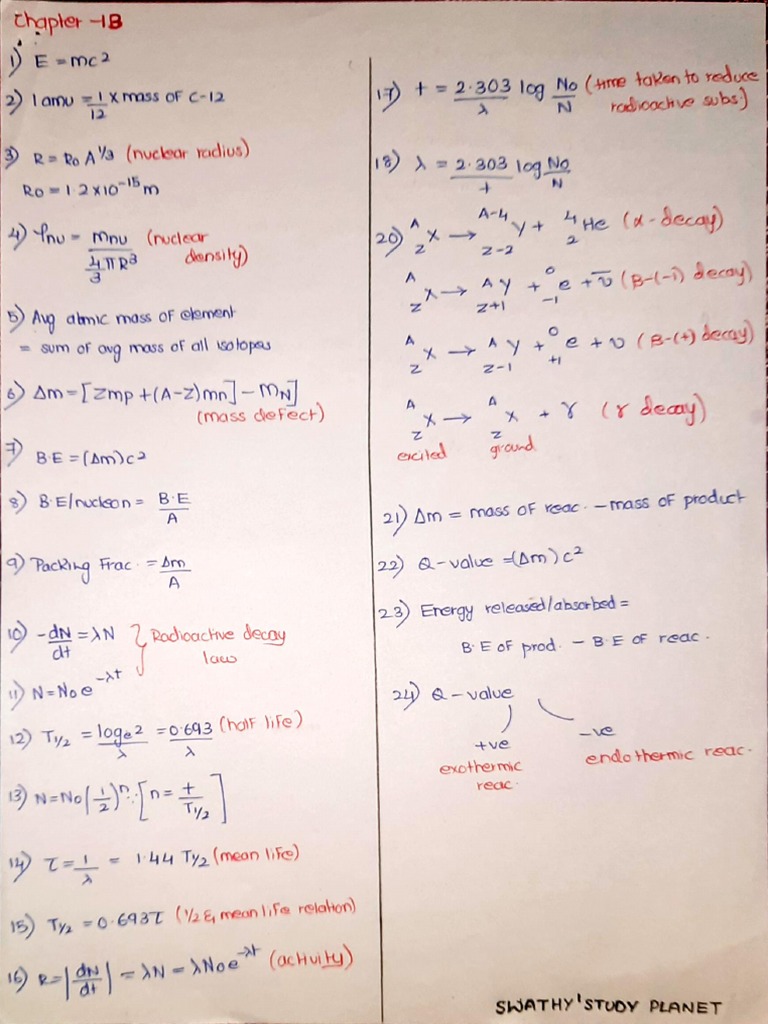 Chapter -13
1) E = mc²
2) 1 amu = 1/12 × mass of C-12
3) R = R₀ A^1/3 (nuclear radius)
R₀ = 1.2 × 10⁻¹⁵ m
4) ρnu = mnu / (4/3 πR³) (nuclear density)
5) Avg atmic mass of element
= sum of avg mass of all isotopes
6) Δm = [Zmp + (A-Z)mn] - MN]
(mass defect)
7) B.E = (Δm)c²
8) B.E/nucleon = B.E/A
9) Packing Frac. = Δm/A
10) -dN/dt = λN } Radioactive decay law
11) N = N₀e^-λt
12) T1/2 = logₑ2/λ = 0.693/λ (half life)
13) N = N₀(1/2)ⁿ ∵ [n = t/T1/2]
14) τ = 1/λ = 1.44 T1/2 (mean life)
15) T1/2 = 0.693τ (1/2 & mean life relation)
16) R = |dN/dt| = λN = λN₀e^-λt (activity)
17) t = 2.303/λ log N₀/N (time taken to reduce radioactive subs.)
18) λ = 2.303/t log N₀/N
20) ᴬ_Z X → ᴬ⁻⁴_Z-2 Y + ⁴₂He (α-decay)
ᴬ_Z X → ᴬ_Z+1 Y + ⁰₋₁e + ῡ (β-(-) decay)
ᴬ_Z X → ᴬ_Z-1 Y + ⁰₊₁e + υ (β-(+) decay)
ᴬ_Z X → ᴬ_Z X + γ (γ decay)
excited ground
21) Δm = mass of reac. - mass of product
22) Q-value = (Δm)c²
23) Energy released/absorbed =
B.E of prod. - B.E of reac.
24) Q-value
+ve -ve
exothermic reac. endothermic reac.
SWATHY'STUDY PLANET